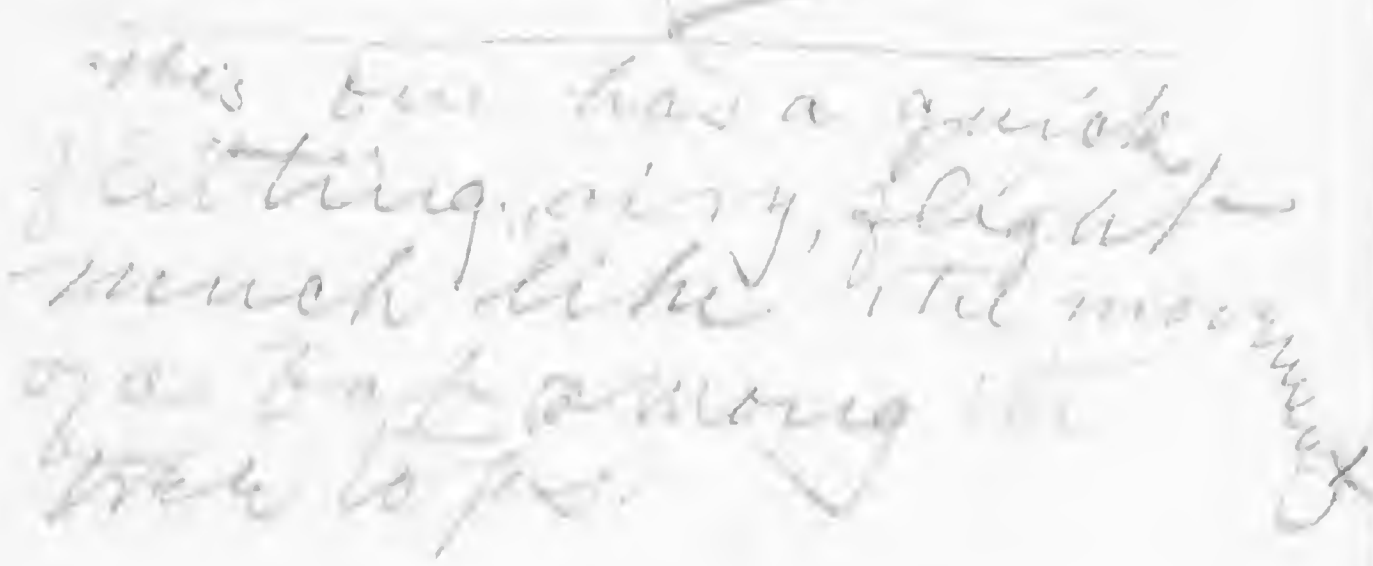 this bird has a quick
flitting, airy, flight –
much like the movement
of a bat among the
tree tops.